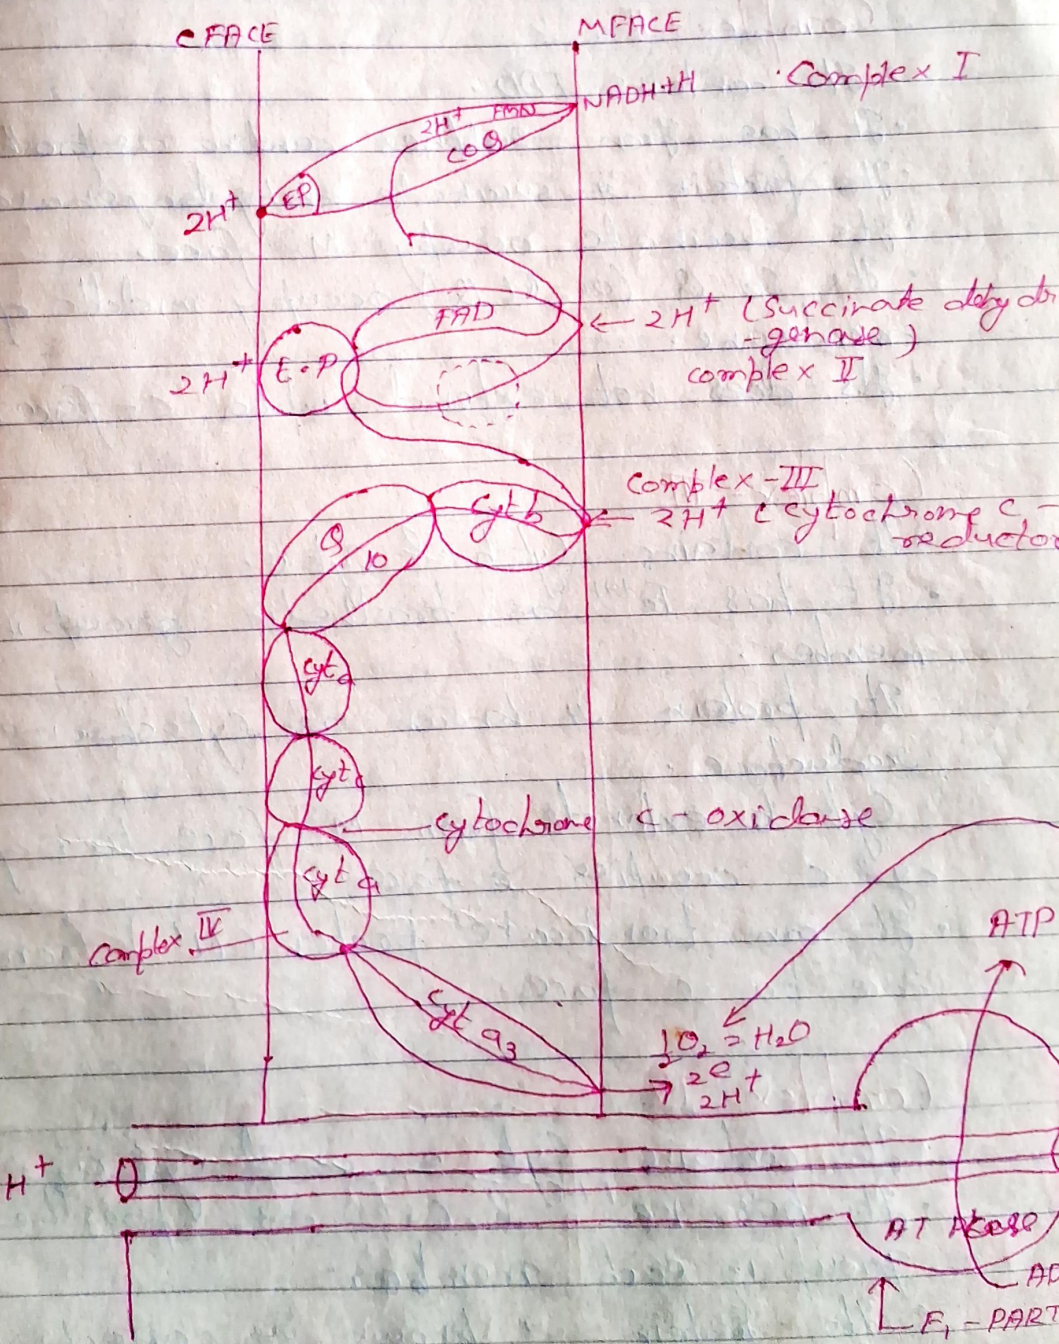 C FACE
M FACE
Complex I
NADH+H
2H+ FMN
CO Q
EP
2H+
FAD
2H+ (Succinate dehydr
-genase)
complex II
t.P
2H+
Complex-III
2H+ ( cytochrome c -
reductor
cyt b
Q
10
cyt c
cyt c
cytochrome c - oxidase
cyt a
complex IV
cyt a3
ATP
½O2 = H2O
2e
2H+
H+
ATPase
AD
F1 - PART